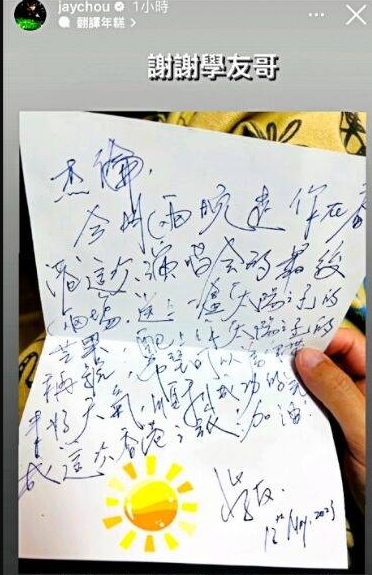 jaychou 1小時
翻譯年糕 >
謝謝學友哥
杰倫,
今明兩晚是你在香
港這次演唱會的最後
兩場,送上一 太陽之子的
芒果,配上你太陽之子的
稱號,希望可以
來好天氣,順利成功的完
成這次香港之 加油!
學友.
12th May. 2023